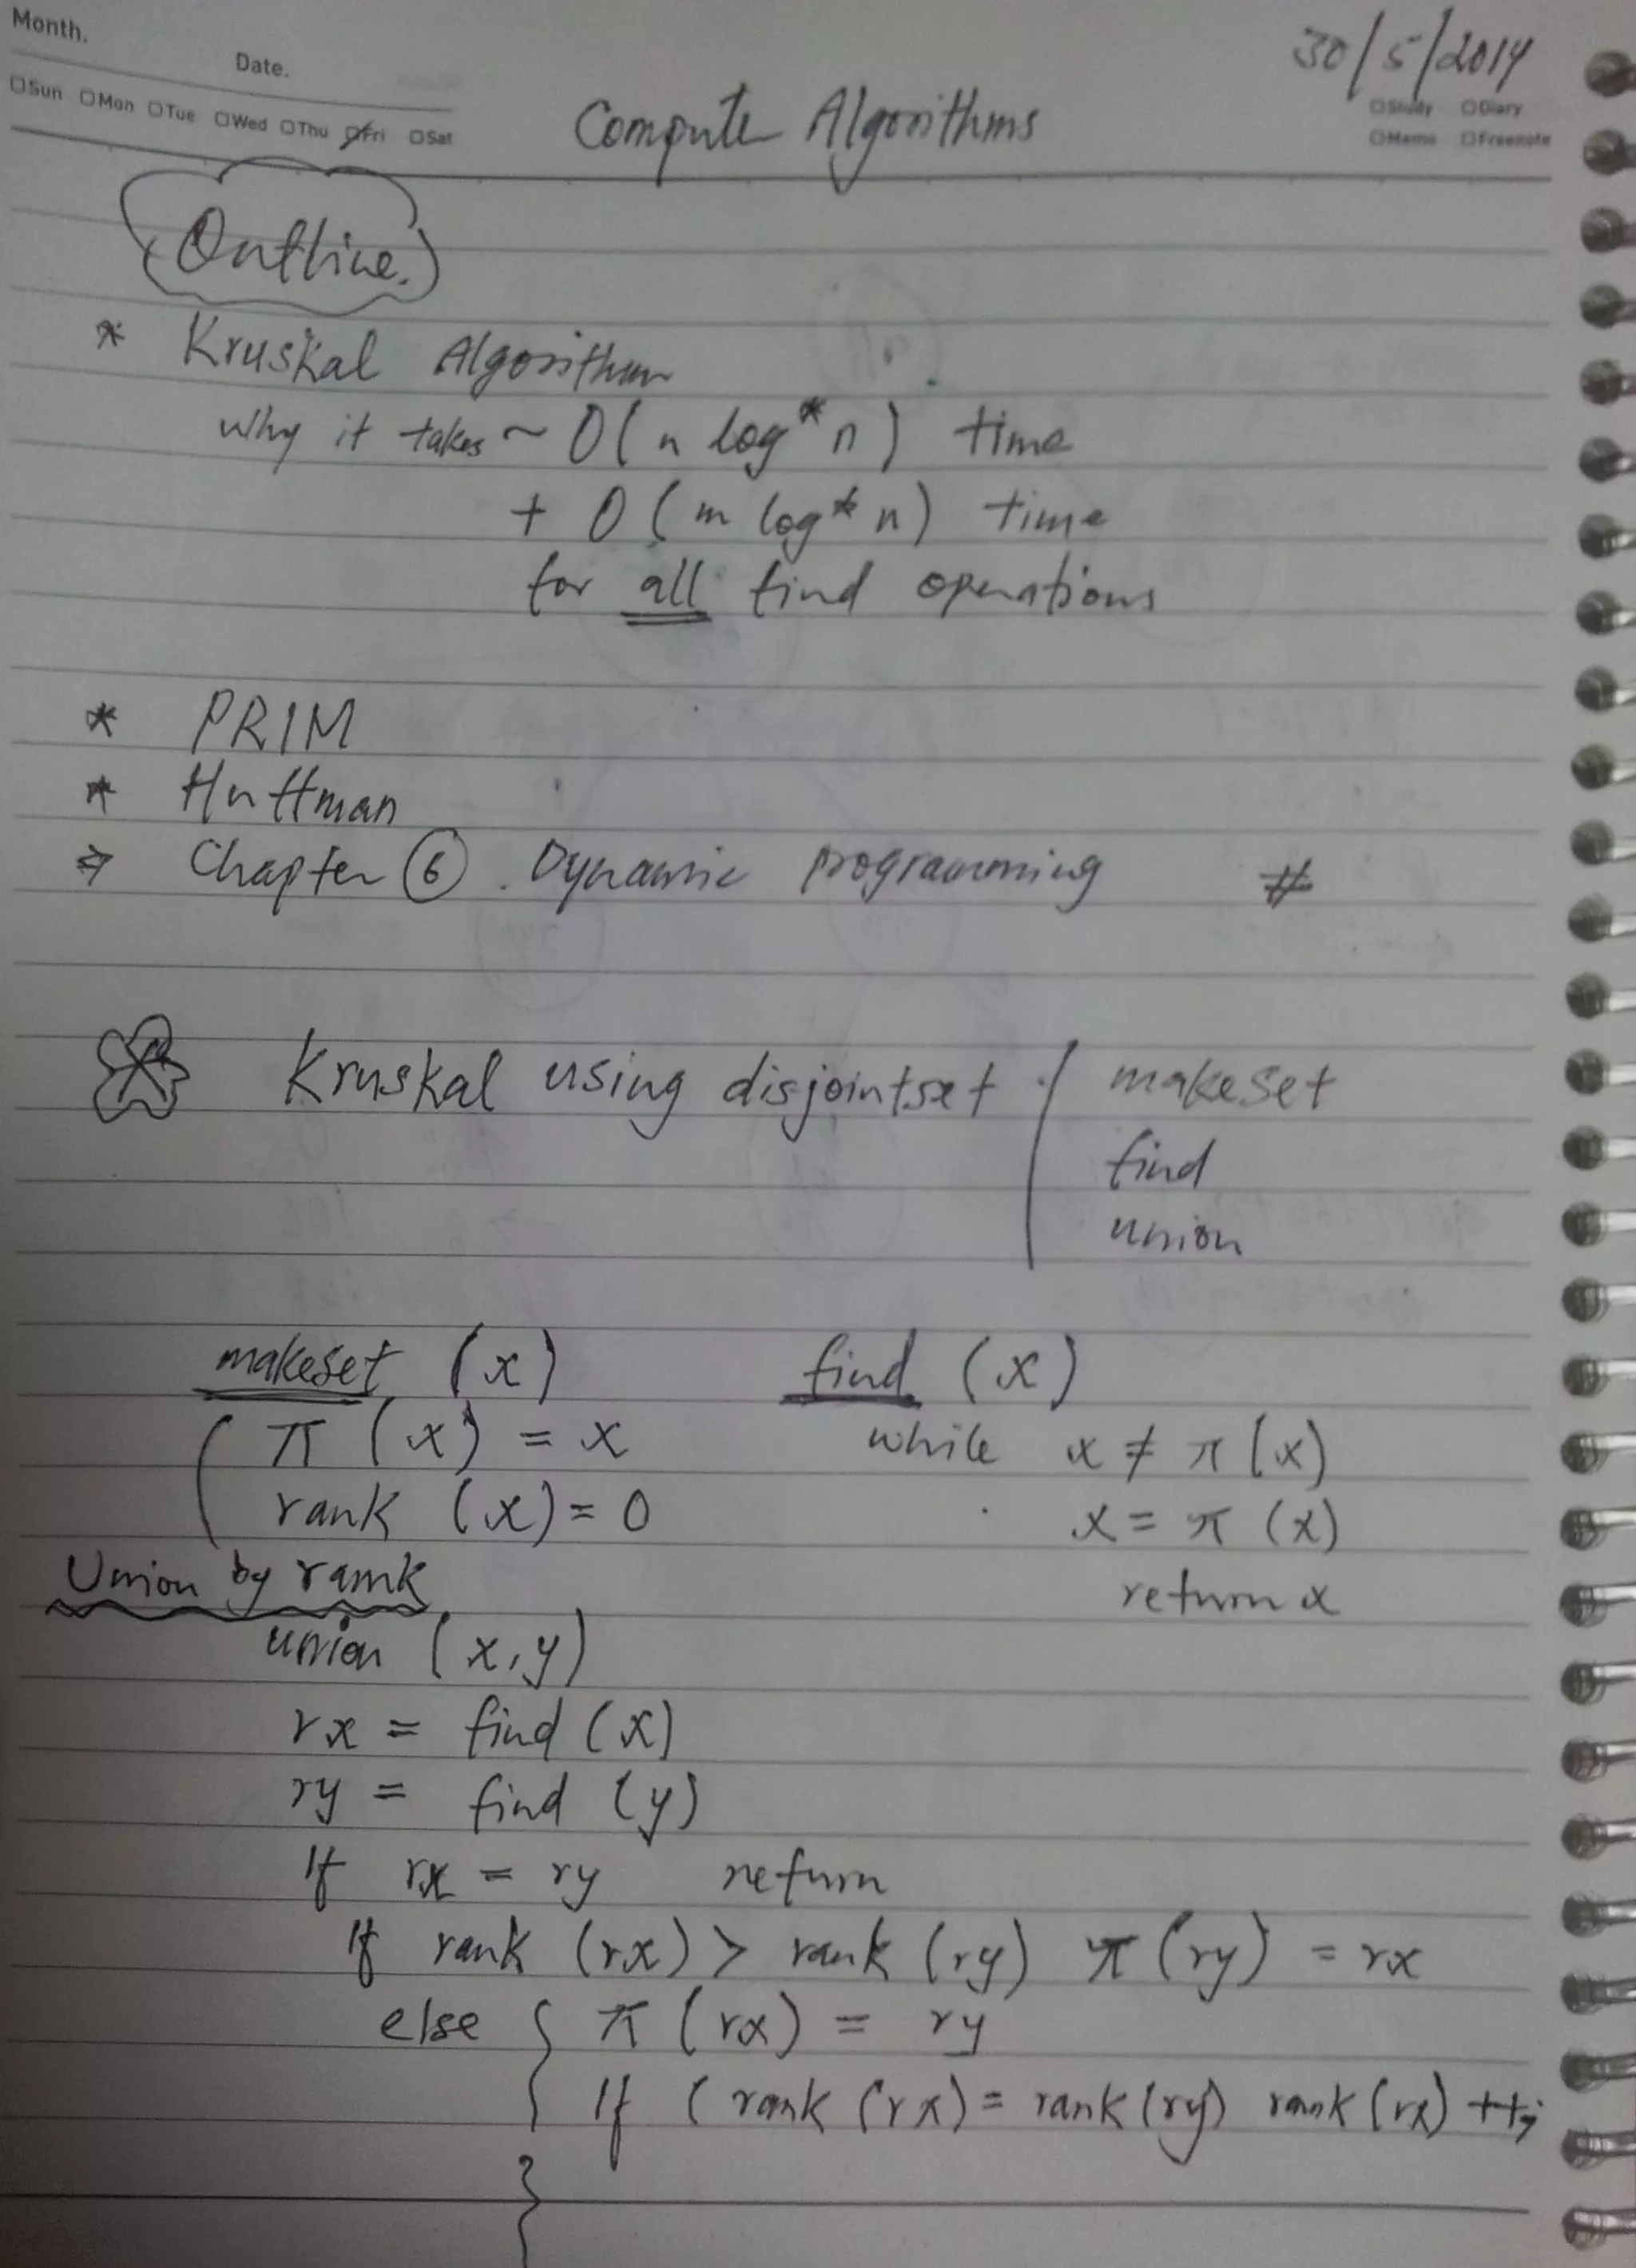 Month.
Date.
30/5/2014
Sun Mon Tue Wed Thu Fri Sat
Study Diary
Memo Freenote
Compute Algorithms
Outline.
* Kruskal Algorithm
why it takes ~ O(n log* n) time
+ O(m log* n) time
for all find operations
* PRIM
* Huffman
⇒ Chapter ⑥. Dynamic programming #
Kruskal using disjointset / makeset
find
union
makeset (x) find (x)
π(x) = x while x ≠ π(x)
rank (x) = 0 x = π(x)
Union by rank return x
union (x,y)
rx = find (x)
ry = find (y)
If rx = ry return
If rank (rx) > rank (ry) π(ry) = rx
else { π(rx) = ry
If (rank (rx) = rank(ry) rank(rx) ++;
}